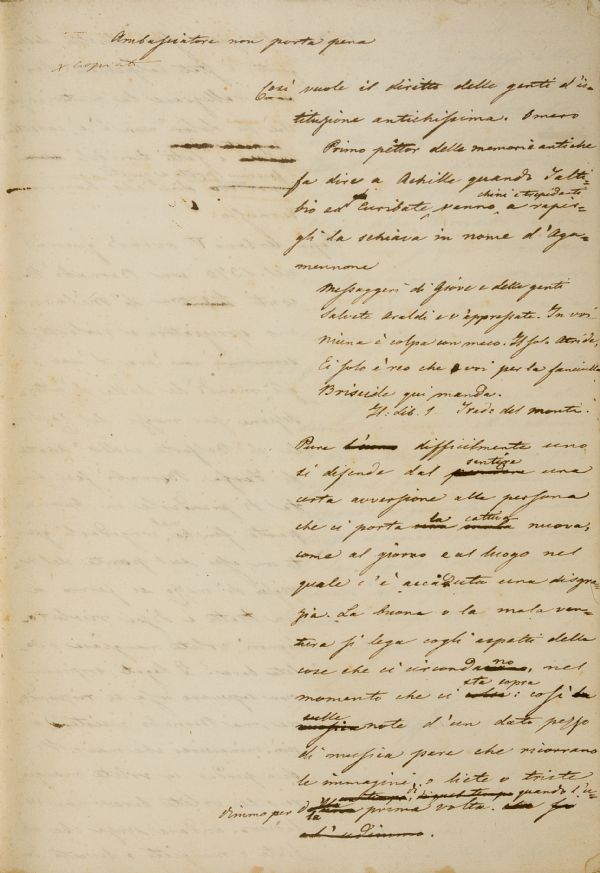 Ambasciatore non porta pena
Così vuole il diritto delle genti d'is-
tituzione antichissima. Omero
Primo pittor delle memorie antiche
fa dire a Achille quando Talti-
chini e trepidanti
bio ed Euribate, vanno a rapir-
gli la schiava in nome d'Aga-
mennone
Messaggeri di Giove e delle genti
Salvete Araldi e v'appressate. In voi
Niuna è colpa con meco. Il solo Atride,
Ei solo è reo che voi per la fanciulla
Briseide qui manda.
Il: lib. 1. Trad: del Monti.
Pure difficilmente uno
si difende dal sentire una
certa avversione alla persona
che ci porta la cattiva nuova,
come al giorno e al luogo nel
quale c'è accaduta una disgra-
zia. La buona o la mala ven-
tura si lega cogli aspetti delle
cose che ci circondano, nel
momento che ci sta sopra: così
sulle note d'un dato pezzo
di musica pare che ricorrano
le immagini o liete o triste
quando l'u-
dimmo per la prima volta.